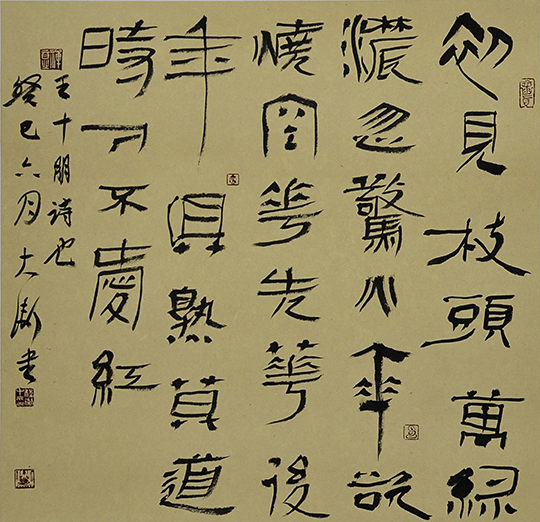 初見枝頭萬綠
濃忽驚火傘欲
燒空花先華後
年俱熟莫道
時人不愛紅
王十朋詩也
癸巳六月大書